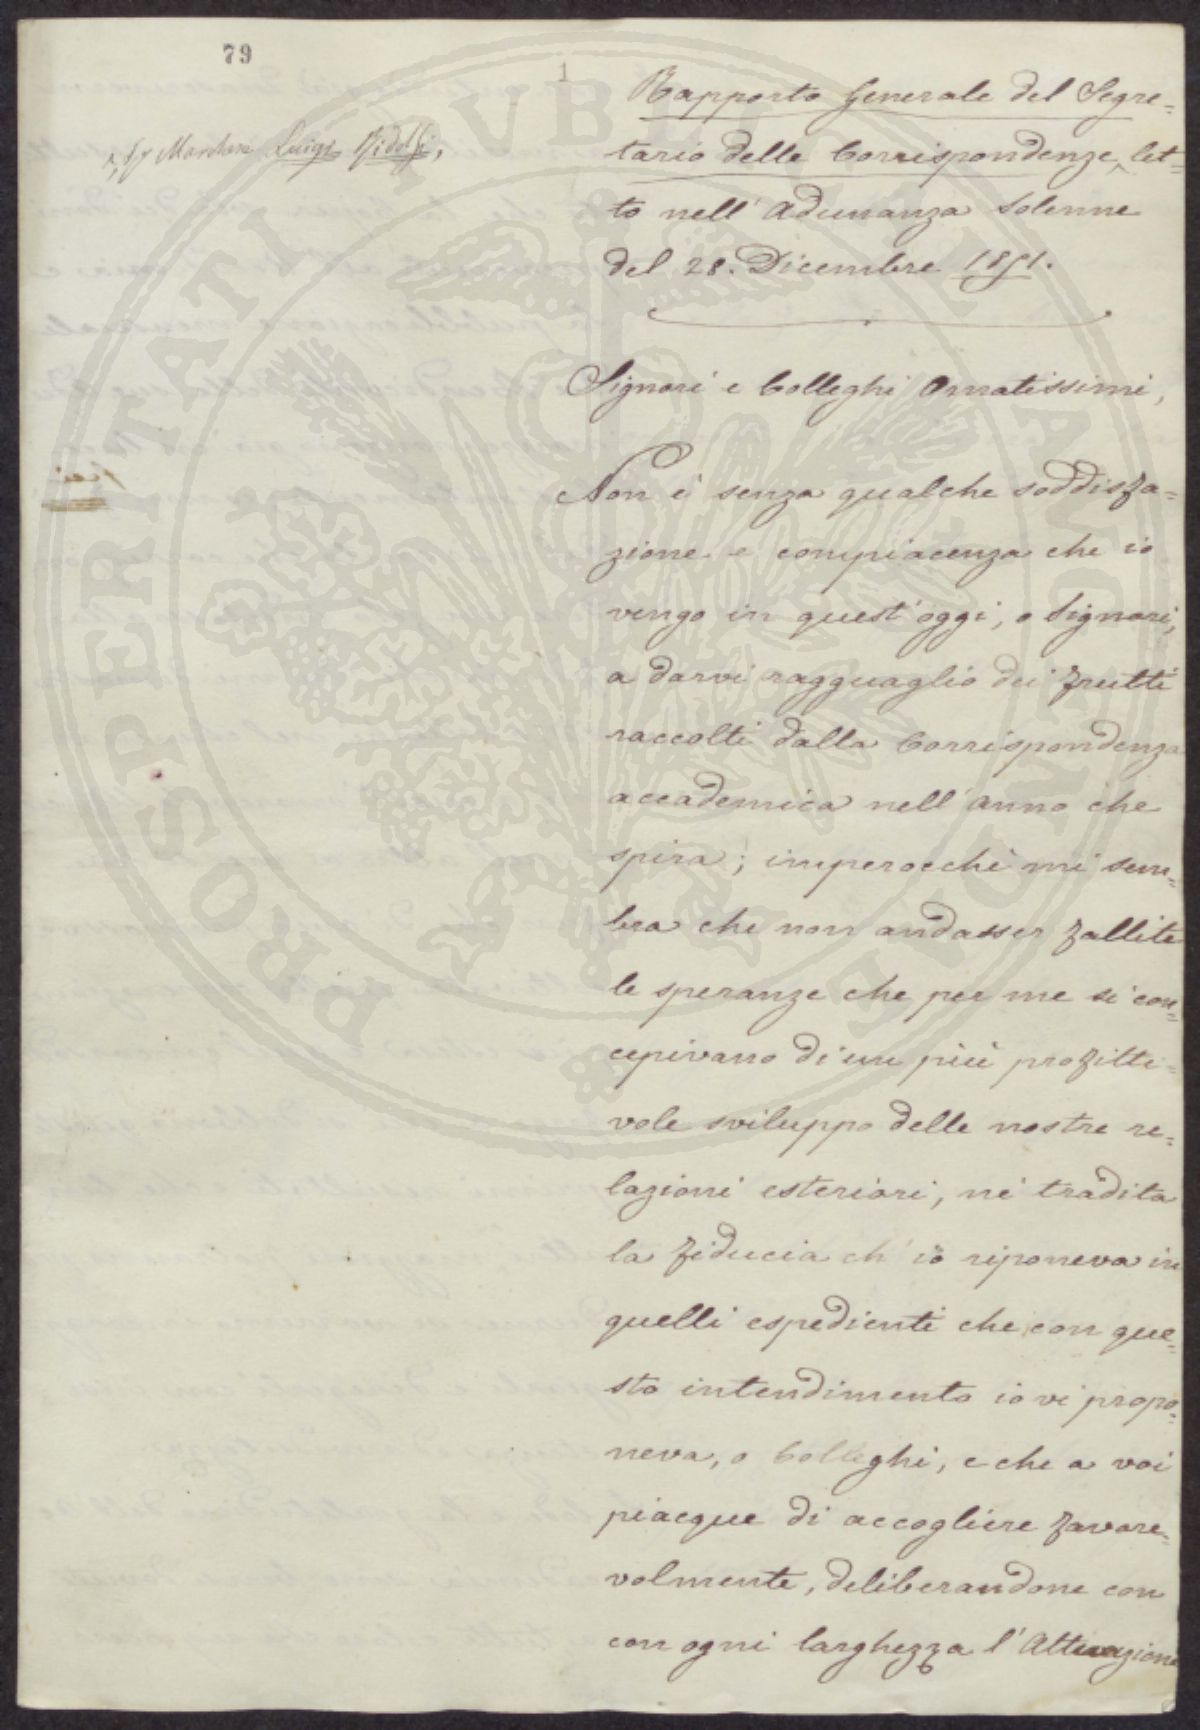 79
1
Rapporto Generale del Segre=
tario delle Corrispondenze, let=
Luigi Ridolfi,
to nell' Adunanza solenne
del 28. Dicembre 1851.
Signori e Colleghi Ornatissimi,
Non è senza qualche soddisfa=
zione e compiacenza che io
vengo in quest' oggi, o Signori,
a darvi ragguaglio dei frutti
raccolti dalla Corrispondenza
accademica nell' anno che
spira; imperocchè mi sem=
bra che non andasser fallite
le speranze che per me si con=
cepivano di un più profitte=
vole sviluppo delle nostre re=
lazioni esteriori, nè tradita
la fiducia ch' io riponeva in
quelli espedienti che con que=
sto intendimento io vi propo=
neva, o Colleghi, e che a voi
piacque di accogliere favore=
volmente, deliberandone con
con ogni larghezza l' Attivazione
PROSPERITATI PUBLICAE AUGENDAE